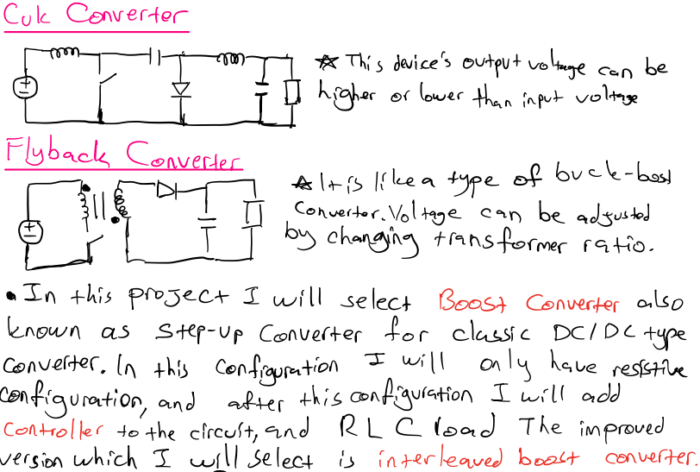 Cuk Converter
★ This device's output voltage can be
higher or lower than input voltage
Flyback Converter
★ It is like a type of buck-boost
Converter. Voltage can be adjusted
by changing transformer ratio.
• In this project I will select Boost Converter also
known as Step-up Converter for classic DC/DC type
Converter. In this configuration I will only have resistive
configuration, and after this configuration I will add
Controller to the circuit, and RLC load The improved
version which I will select is interleaved boost converter.